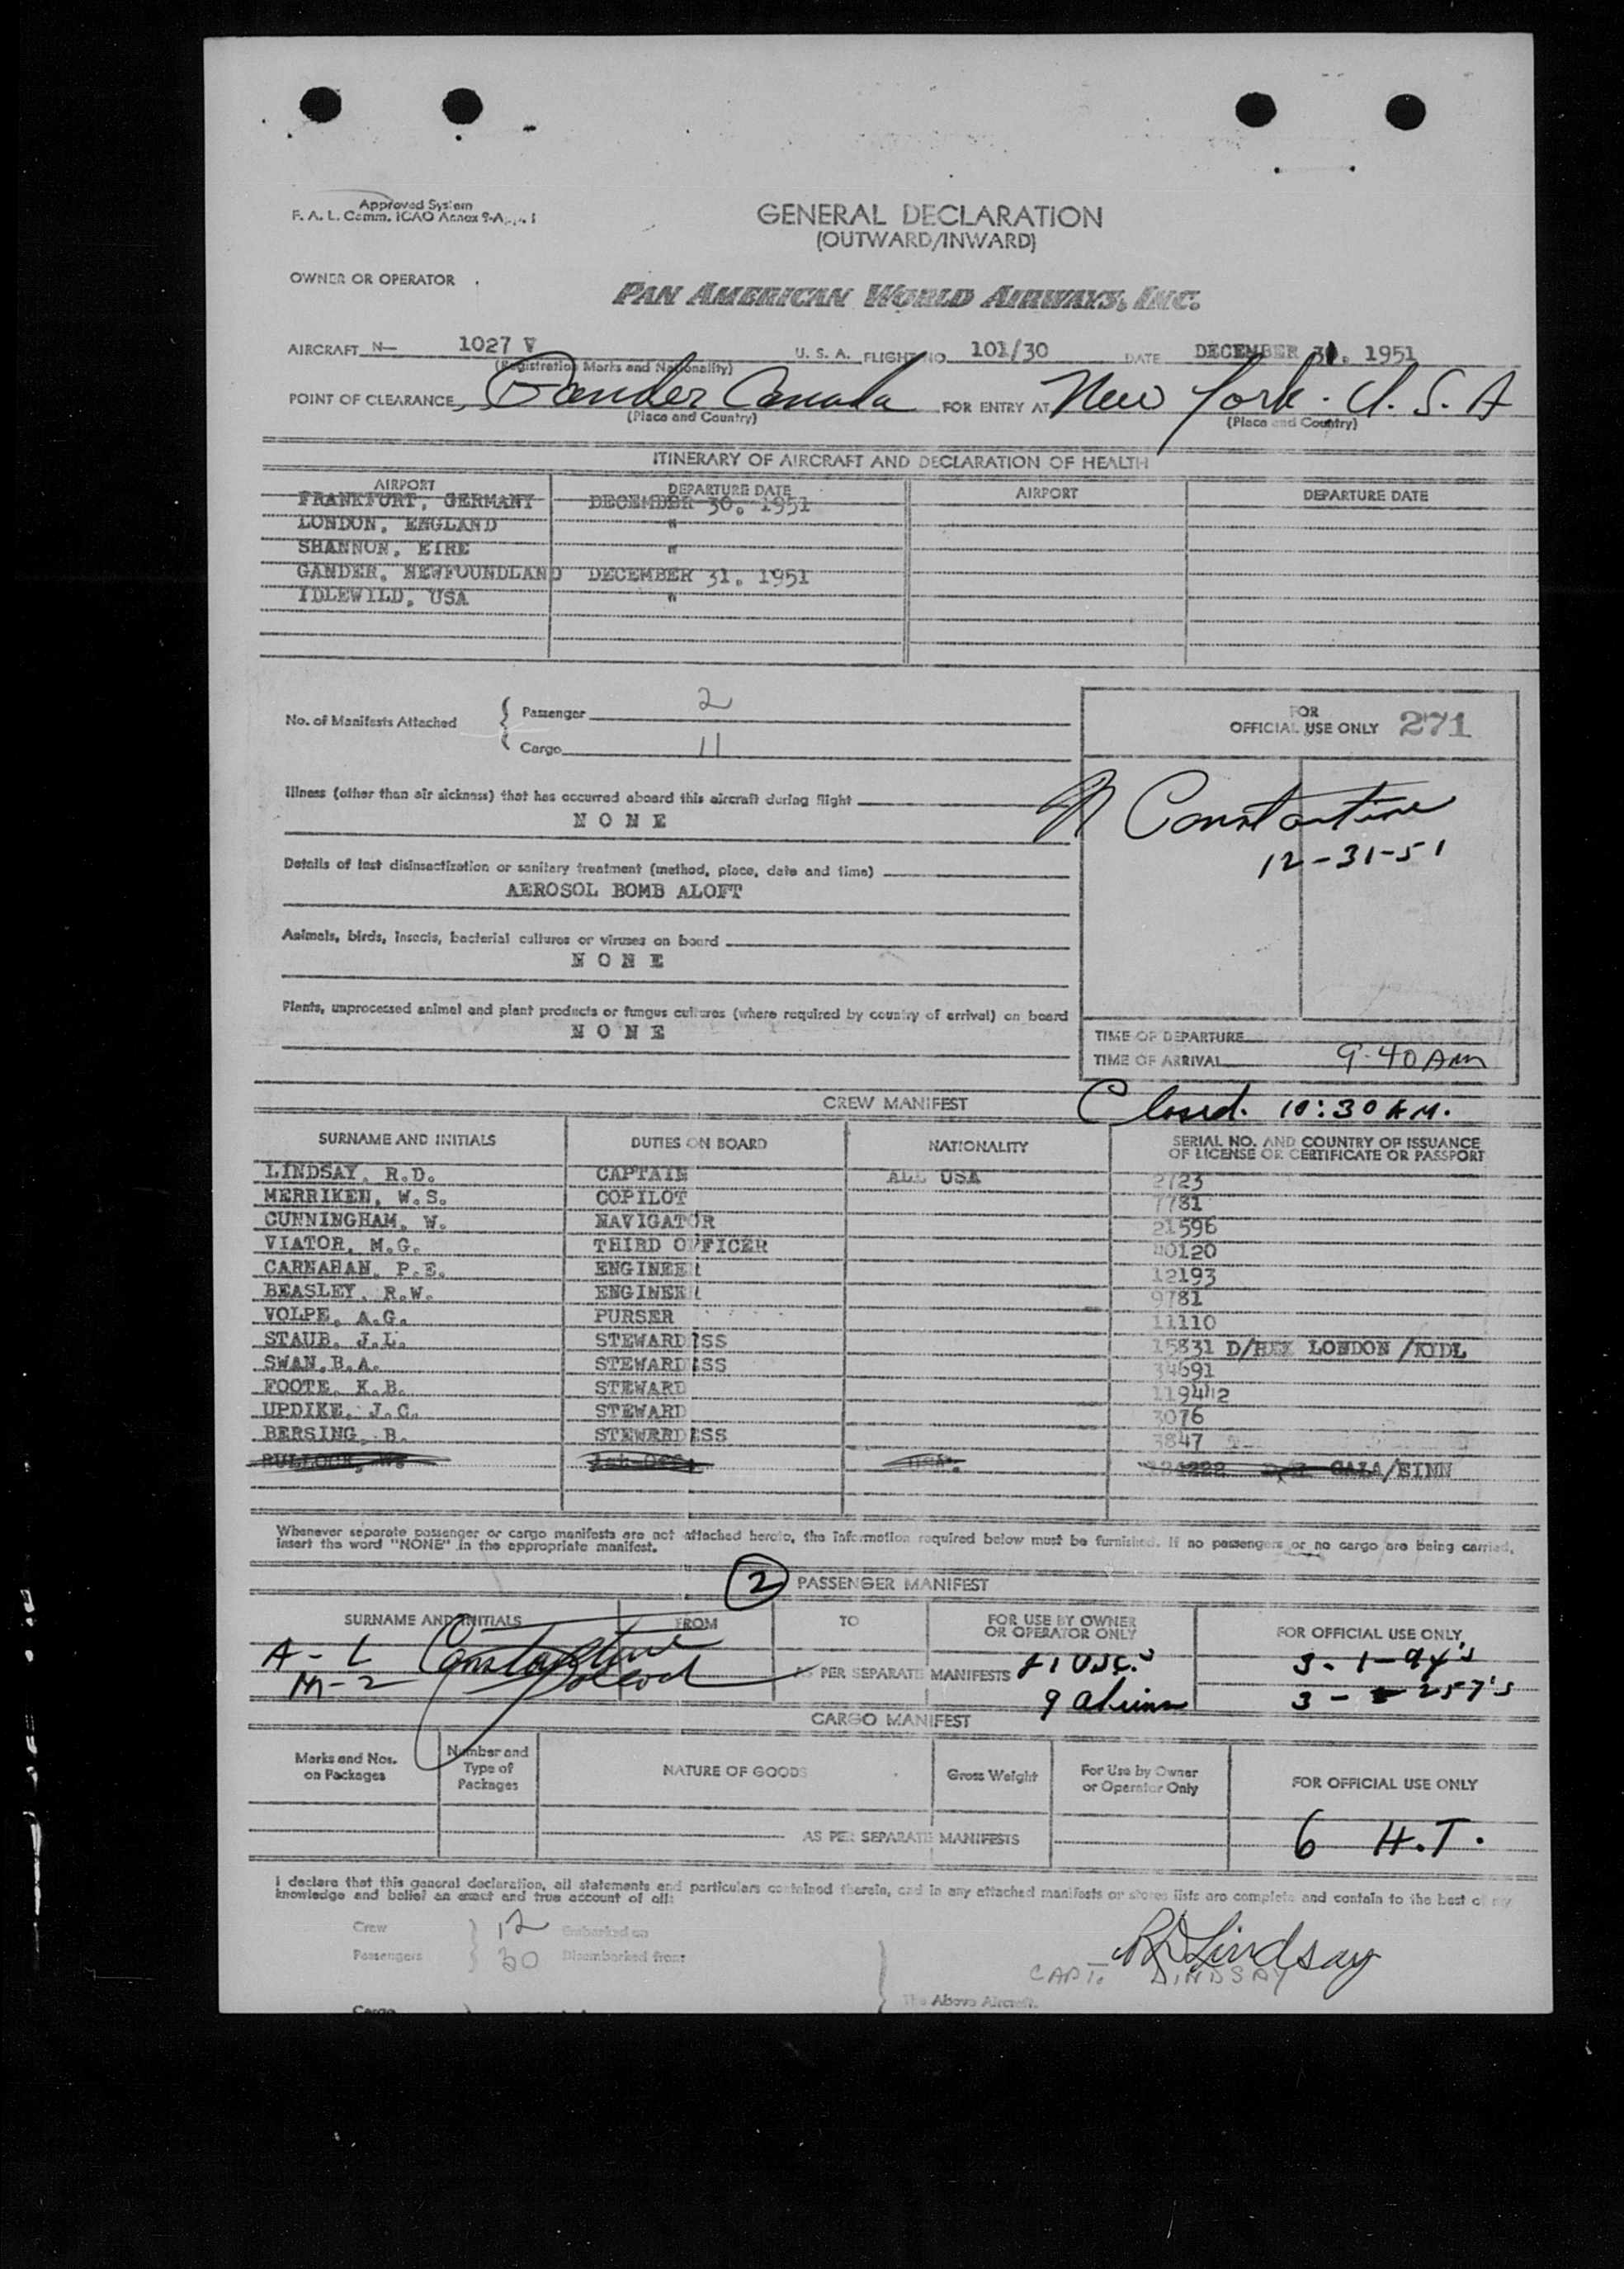 Approved System
F. A. L. Comm. ICAO Annex 9-App. 1
GENERAL DECLARATION
(OUTWARD/INWARD)
OWNER OR OPERATOR
PAN AMERICAN WORLD AIRWAYS, INC.
AIRCRAFT N— 1027 V U. S. A. FLIGHT NO. 101/30 DATE DECEMBER 31, 1951
(Registration Marks and Nationality)
POINT OF CLEARANCE, Gander Canada FOR ENTRY AT New York. U. S. A
(Place and Country) (Place and Country)
ITINERARY OF AIRCRAFT AND DECLARATION OF HEALTH
AIRPORT DEPARTURE DATE AIRPORT DEPARTURE DATE
FRANKFURT, GERMANY DECEMBER 30, 1951
LONDON, ENGLAND "
SHANNON, EIRE "
GANDER, NEWFOUNDLAND DECEMBER 31, 1951
IDLEWILD, USA "
No. of Manifests Attached
Passenger 2
Cargo 11
FOR
OFFICIAL USE ONLY 271
N Constantine
12-31-51
Illness (other than air sickness) that has occurred aboard this aircraft during flight
N O N E
Details of last disinsectization or sanitary treatment (method, place, date and time)
AEROSOL BOMB ALOFT
Animals, birds, insects, bacterial cultures or viruses on board
N O N E
Plants, unprocessed animal and plant products or fungus cultures (where required by country of arrival) on board
N O N E
TIME OF DEPARTURE
TIME OF ARRIVAL 9-40 AM
CREW MANIFEST Closed. 10:30 A.M.
SURNAME AND INITIALS DUTIES ON BOARD NATIONALITY SERIAL NO. AND COUNTRY OF ISSUANCE
OF LICENSE OR CERTIFICATE OR PASSPORT
LINDSAY, R.D. CAPTAIN ALL USA 2723
MERRIKEN, W.S. COPILOT 7781
CUNNINGHAM, W. NAVIGATOR 21596
VIATOR, M.G. THIRD OFFICER 40120
CARNAHAN, P.E. ENGINEER 12193
BEASLEY, R.W. ENGINEER 9781
VOLPE, A.G. PURSER 11110
STAUB, J.L. STEWARDESS 15831 D/HEX LONDON /KIDL
SWAN, B.A. STEWARDESS 34691
FOOTE, K.B. STEWARD 119442
UPDIKE, J.C. STEWARD 3076
BERSING, B. STEWERDESS 3847
BULLOCK, W. 1st Off. USA. GALA/EINN
Whenever separate passenger or cargo manifests are not attached hereto, the information required below must be furnished. If no passengers or no cargo are being carried,
insert the word "NONE" in the appropriate manifest.
2 PASSENGER MANIFEST
SURNAME AND INITIALS FROM TO FOR USE BY OWNER
OR OPERATOR ONLY FOR OFFICIAL USE ONLY
A - L Constantine 21 USC's 3 - 1-94's
M - 2 AS PER SEPARATE MANIFESTS
9 aliens 3 - 257's
CARGO MANIFEST
Marks and Nos.
on Packages
Number and
Type of
Packages
NATURE OF GOODS
Gross Weight
For Use by Owner
or Operator Only
FOR OFFICIAL USE ONLY
AS PER SEPARATE MANIFESTS 6 H.T.
I declare that this general declaration, all statements and particulars contained therein, and in any attached manifests or stores lists are complete and contain to the best of my
knowledge and belief an exact and true account of all:
Crew 12 Embarked on
Passengers 30 Disembarked from
Cargo
The Above Aircraft.
RD Lindsay
CAPT. LINDSAY